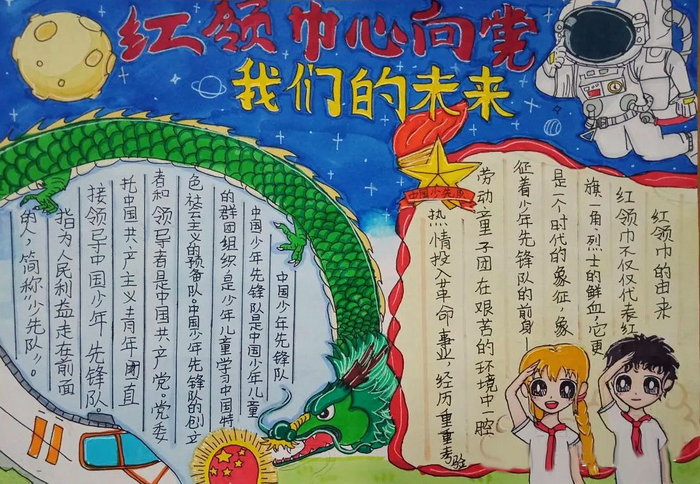 红领巾心向党
我们的未来
中国少先队
红领巾的由来
红领巾不仅仅代表红
旗一角,烈士的鲜血,它更
是一个时代的象征,象
征着少年先锋队的前身—
劳动童子团在艰苦的环境中一腔
热情投入革命事业,经历重重考验
中国少年先锋队
中国少年先锋队是中国少年儿童
的群团组织,是少年儿童学习中国特
色社会主义的预备队。中国少年先锋队的创立
者和领导者是中国共产党。党委
托中国共产主义青年团直
接领导中国少年先锋队。
指为人民利益走在前面
的人,简称"少先队"。